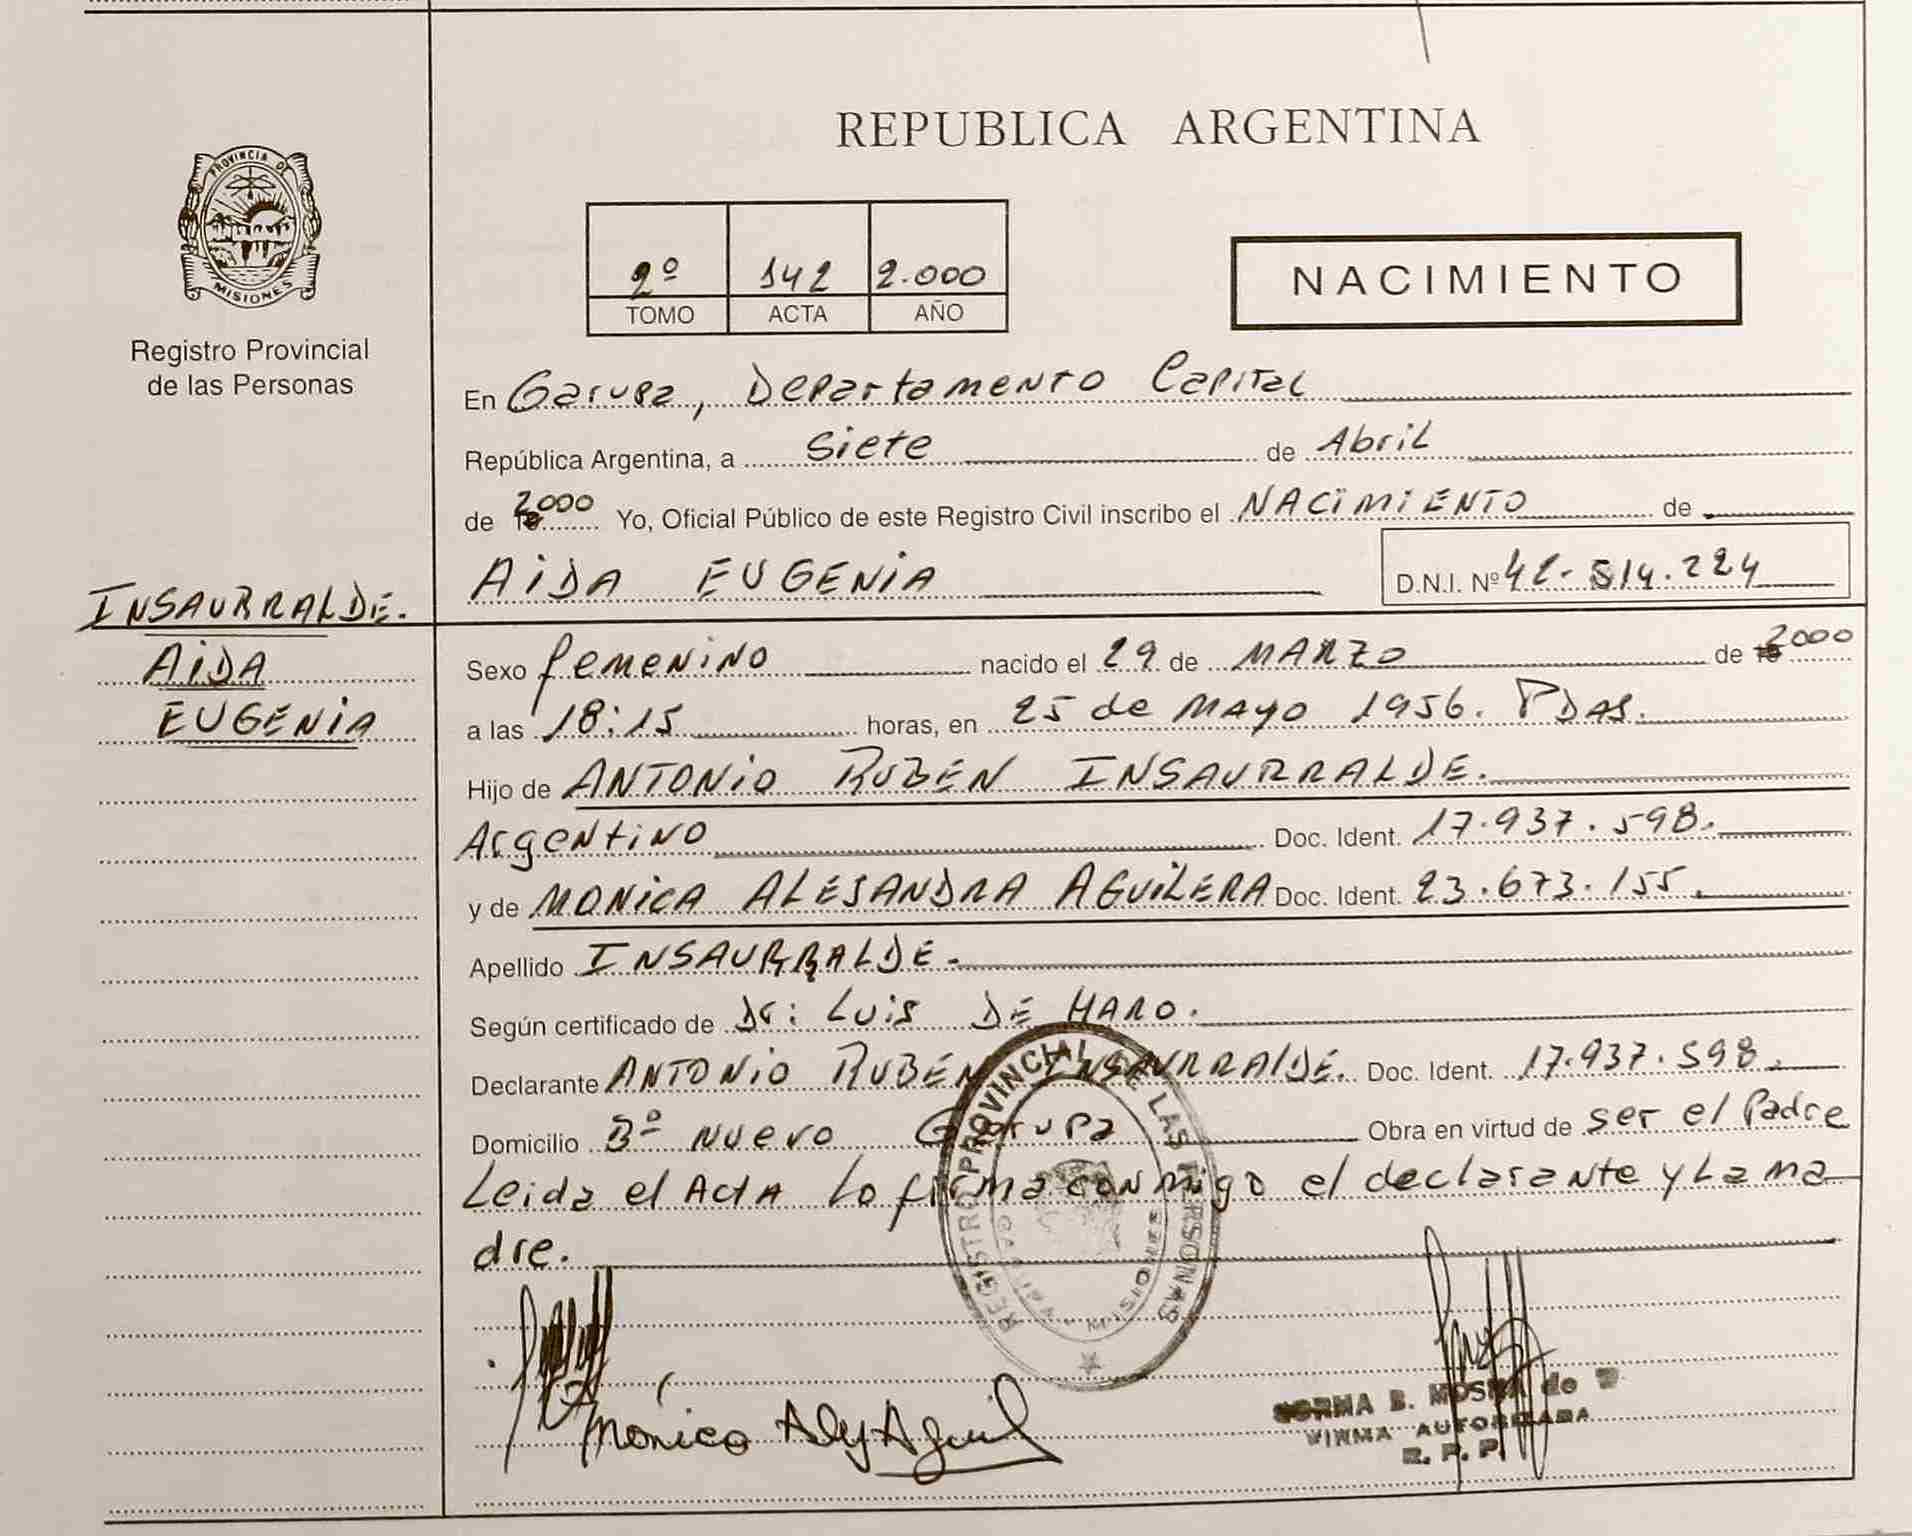 REPUBLICA ARGENTINA
PROVINCIA DE
MISIONES
Registro Provincial
de las Personas
2º 142 2.000
TOMO ACTA AÑO
NACIMIENTO
En Garupa, Departamento Capital
República Argentina, a Siete de Abril
de 2000 Yo, Oficial Público de este Registro Civil inscribo el NACIMIENTO de
AIDA EUGENIA D.N.I. Nº 42.514.224
INSAURRALDE.
AIDA
EUGENIA
Sexo femenino nacido el 29 de MARZO de 2000
a las 18:15 horas, en 25 de Mayo 1956. PDAS.
Hijo de ANTONIO RUBEN INSAURRALDE.
Argentino Doc. Ident. 17.937.598.
y de MONICA ALEJANDRA AGUILERA Doc. Ident. 23.673.155.
Apellido INSAURRALDE.
Según certificado de Dr: Luis DE HARO.
Declarante ANTONIO RUBEN INSAURRALDE. Doc. Ident. 17.937.598.
Domicilio Bº Nuevo Garupa Obra en virtud de ser el Padre
Leida el Acta Lo firma conmigo el declarante y La ma
dre.
REGISTRO PROVINCIAL DE LAS PERSONAS
MISIONES
Monica
B. de
FIRMA AUTORIZADA
R. P. P.